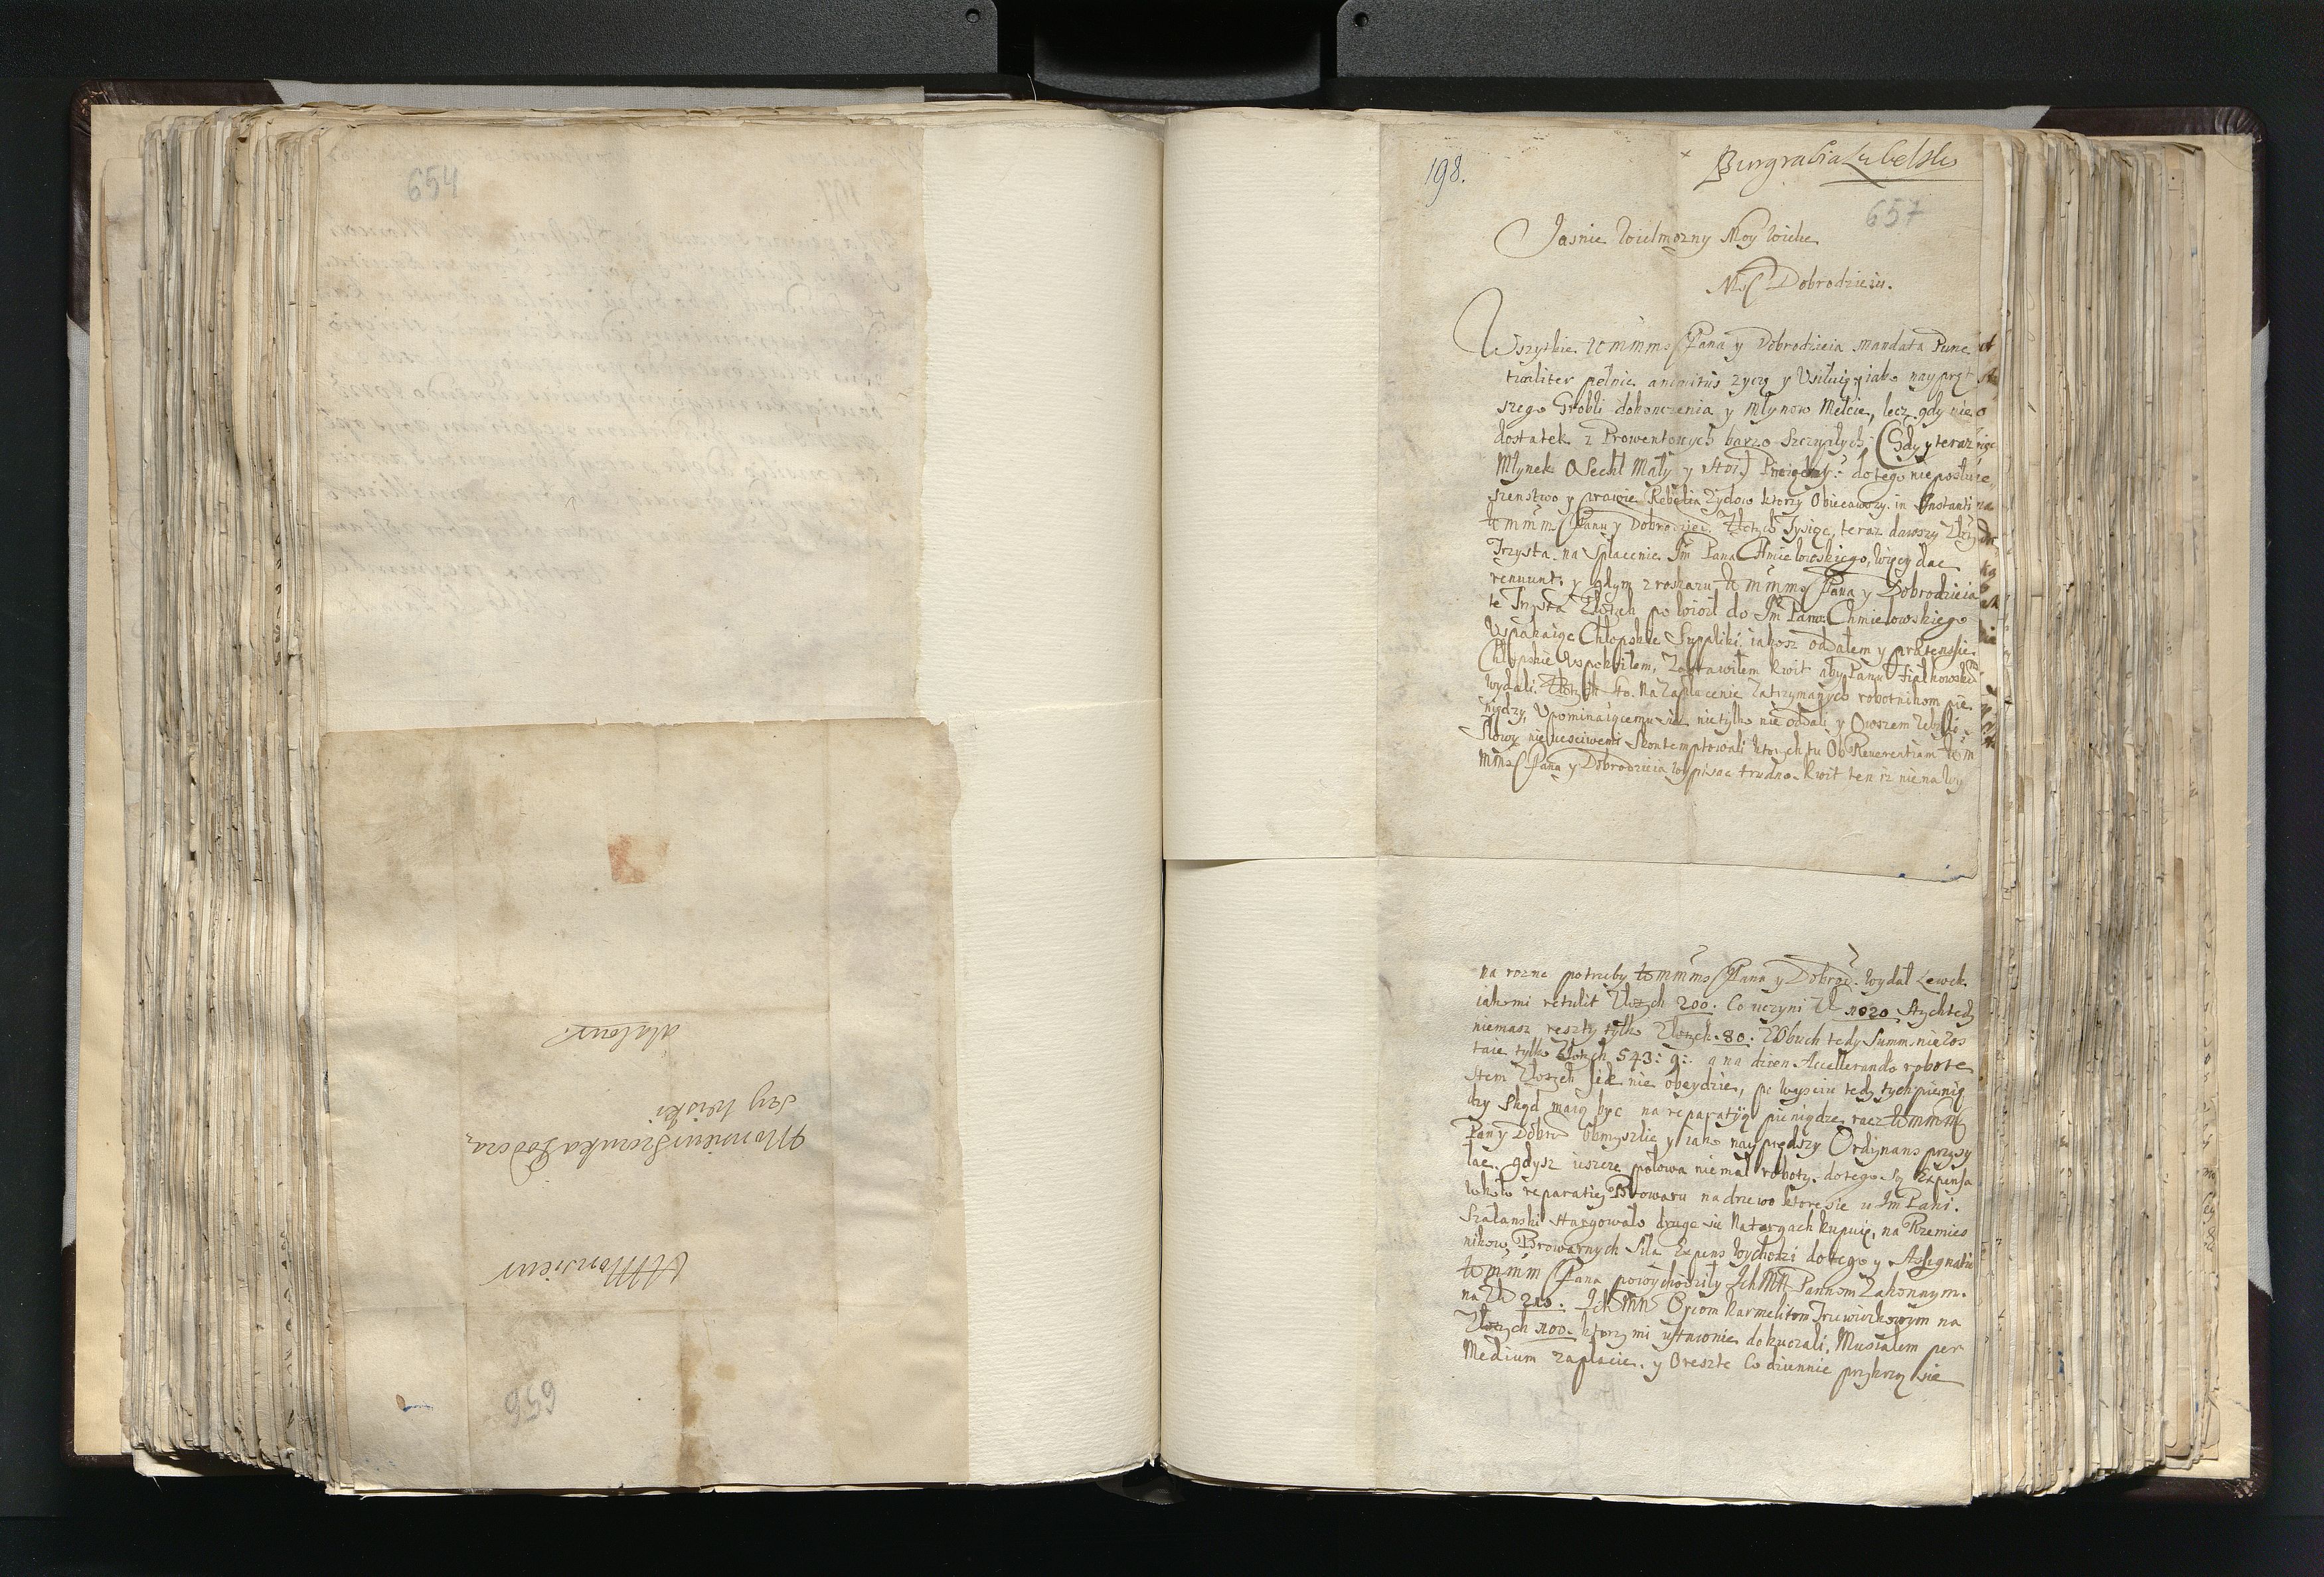 654
A Monsieur
Monsieur Szczuka Podcza,
szy Wiski
a Varsovie
656
198.
Burgrabia Lubelski
657
Jasnie Wielmozny Moy Wielce
Mśc Dobrodzieiu.
Wszytkie WMMMs Pana y Dobrodzieia mandata Punc
tualiter pełnic animitus zyczę y Usiłuię y iako naypręt
szego Grobli dokonczenia y Młynow Melcie, lecz gdy nie
dostatek z Prowentowych barzo Szczupłych (Gdy y teraz
Młynek Osechł Mały y stoi) Pieniędzy: do tego nieposłu
szenstwo y prawie Rebelia Zydow ktorzy Obiecawszy in Instanti
WMMMs Panu y Dobrodziei. Złotych Tysiąc, teraz dawszy Złotych
Trzysta na Spłacenie Jm Pana Chmielowskiego, więcy dac
renuunt. y gdym z roskazu WMMMs Pana y Dobrodzieia
te Trzysta Złotych powiozł do Jm Pana Chmielowskiego
Uspakaiąc Chłopskie Suppliki iakosz oddałem y praetensie
Chłopskie Uspokoiłem, Zostawiłem kwit aby Panu Fiałkowski
wydali Złotych sto. Na Zapłacenie Zatrzymanych robotnikom pie
niędzy, Upominaiącemu się nie tylko nie oddali y Owszem Zelzyli
Słowy nieucsciwemi Skontemptowali ktorych tu Ob Reuerentiam WM
MMs Pana y Dobrodzieia wypisac trudno. Kwit ten iz nie na wy
na rozne potrzeby WMMMs Pana y Dobrod. wydał Lewek
iako mi retulit Złotych 200. Co uczyni Zł 1020 Azych tedy
niemasz reszty tylko Złotych. 80. Z Obuch tedy Summ nie zos
taie tylko Złotych 543: 9: a na dzien Accellerando robote
stem Złotych się nie obeydzie, po wysciu tedy tych pienię
dzy skąd maią byc na reparatyą pieniądze racz WMMMs
Pan y Dobro Obmyslic y iako nayprędszy Ordynans przysy
łac. gdysz ieszcze połowa niemal roboty. do tego są Expensa
wkoło reparatiey Browaru na drzewo ktore sie u Jm Pani
Szałanski stargowało drugę sie Na targach kupuię, na Rzemies
nikow Browarnych Siła Expens wychodzi do tego y Assignatie
WMMM Pana powychodziły Ich MM Pannom Zakonnym.
na Zł 210. Ich MM Oycom Karmelitom Trzewiczkowym na
Złotych 100. ktorzy mi ustawnie dokuczali, Musiałem per
Medium zapłacic. y O reszte Co dziennie przykrzą sie